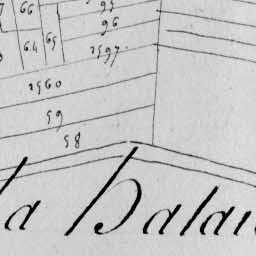 66
95
96
64 65
1597.
1560
59
58
la balai